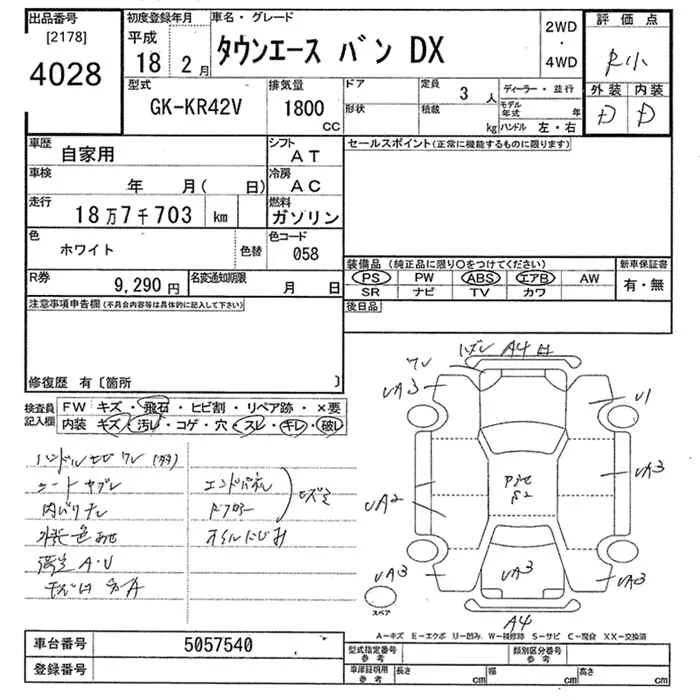 出品番号
[2178]
4028
初度登録年月
平成
18 2月
車名・グレード
タウンエース バン DX
2WD
・
4WD
評価点
外装 内装
D D
型式
GK-KR42V
排気量
1800
CC
ドア
形状
定員
3 人
積載
kg
ディーラー・並行
モデル年式 年
ハンドル 左・右
車歴
自家用
シフト
AT
車検
年 月( 日)
冷房
AC
走行
18万7千703 km
燃料
ガソリン
色
ホワイト
色替
色コード
058
R券
9,290円
名変通知期限
月 日
セールスポイント(正常に機能するものに限ります)
装備品(純正品に限り○をつけてください)
PS PW ABS エアB AW
SR ナビ TV カワ
新車保証書
有・無
後日品
注意事項申告欄(不具合内容等は具体的に記入して下さい)
修復歴 有〔箇所 〕
検査員
記入欄
FW キズ・飛石・ヒビ割・リペア跡・×要
内装 キズ・汚レ・コゲ・穴・スレ・キレ・破レ
シートヤブレ
内バリナシ
エンドパネル
オイルにじみ
A4
UA3
U1
UA3
UA2
UA3
UA3
UA3
A4
スペア
A-キズ E-エクボ U-凹み W-補修跡 S-サビ C-腐食 XX-交換済
車台番号
5057540
登録番号
型式指定番号
参考
類別区分番号
参考
車庫証明用
参考
長さ cm
幅 cm
高さ cm